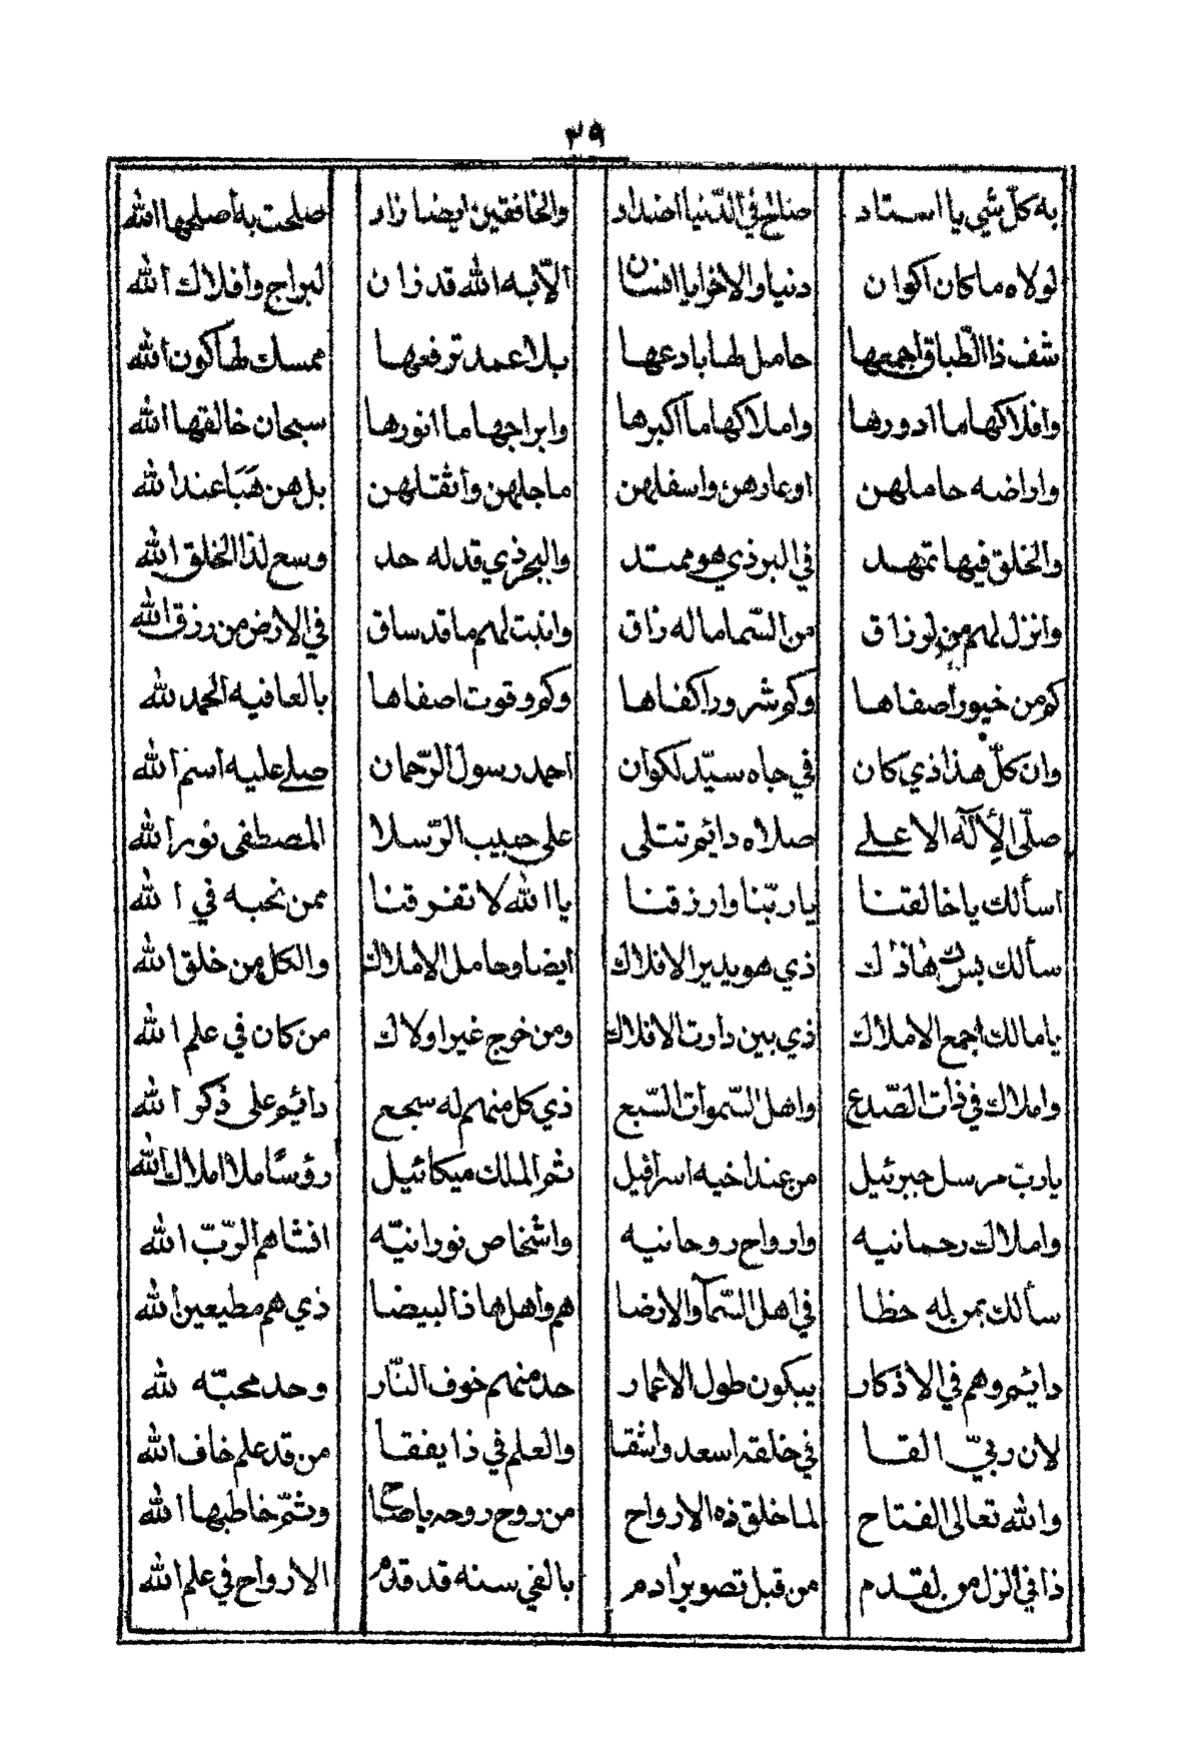 ٣٩
به كلّ شي يا استاد صالح في الدّنيا اضداد والخافقين ايضا زاد صلحت به أصلحها الله
لولاه ما كان اكوان دنيا والاخرايا افنان الّا به الله قد زان لبراج وأفلاك الله
شف ذا الطّباق اجمعها حامل لها بادعها بلا عمد ترفعها ممسك لها كون الله
وافلاكها ما ادورها واملاكها ما أكبرها وابراجها ما انورها سبحان خالقها الله
واراضه حاملهن اوعارهن واسفلهن ما جلهن وأثقلهن بل هن هَبَا عند الله
والخلق فيها تمهد في البر ذي هو ممتد والبحر ذي قد له حد وسع لذا الخلق الله
وانزل لهم من لوزاق من السّما ماله زاق وانبت لهم ما قد ساق في الارض من رزق الله
كم من خيور أصفاها وكم شرور اكفاها وكم وقوت اصفاها بالعافيه الحمد لله
وان كلّ هذا ذي كان في جاه سيّد لكوان احمد رسول الرّحمان صلى عليه اسم الله
صلّى الأله الاعلى صلاه دايم تتلى على حبيب الرّسلا المصطفى نور الله
اسألك يا خالقنا يا ربّنا وارزقنا يا الله لا تفرقنا ممن نحبه في الله
سألك بس هاذاك ذي هو يدير الافلاك ايضا وحامل الاملاك والكل من خلق الله
يا مالك اجمع الاملاك ذي بين دارت الافلاك ومن خرج غير اولاك من كان في علم الله
واملاك في ذات الصّدع واهل السّموات السّبع ذي كل منهم له سجع دايم على ذكر الله
يا ربّ مرسل جبرئيل من عند اخيه اسرافيل ثم الملك ميكائيل رؤسًا ملا املاك الله
واملاك رحمانيه وارواح روحانيه واشخاص نورانيّه انشاهم الرّبّ الله
سألك بمن له حظا في اهل السّمآ والارضا هم وأهل هاذا البيضا ذي هم مطيعين الله
دايم وهم في الاذكار يبكون طول الاعمار حد منهم خوف النّار وحد محبّه لله
لان ربيّ القا في خلقه اسعد واشقا والعلم في ذا يفقا من قد علم خاف الله
والله تعالى الفتاح لما خلق ذه الارواح من روح روحه يا صاح وثمّ خاطبها الله
ذا في الزل من لقدم من قبل تصوير ادم بالفي سنه قد قدم الارواح في علم الله